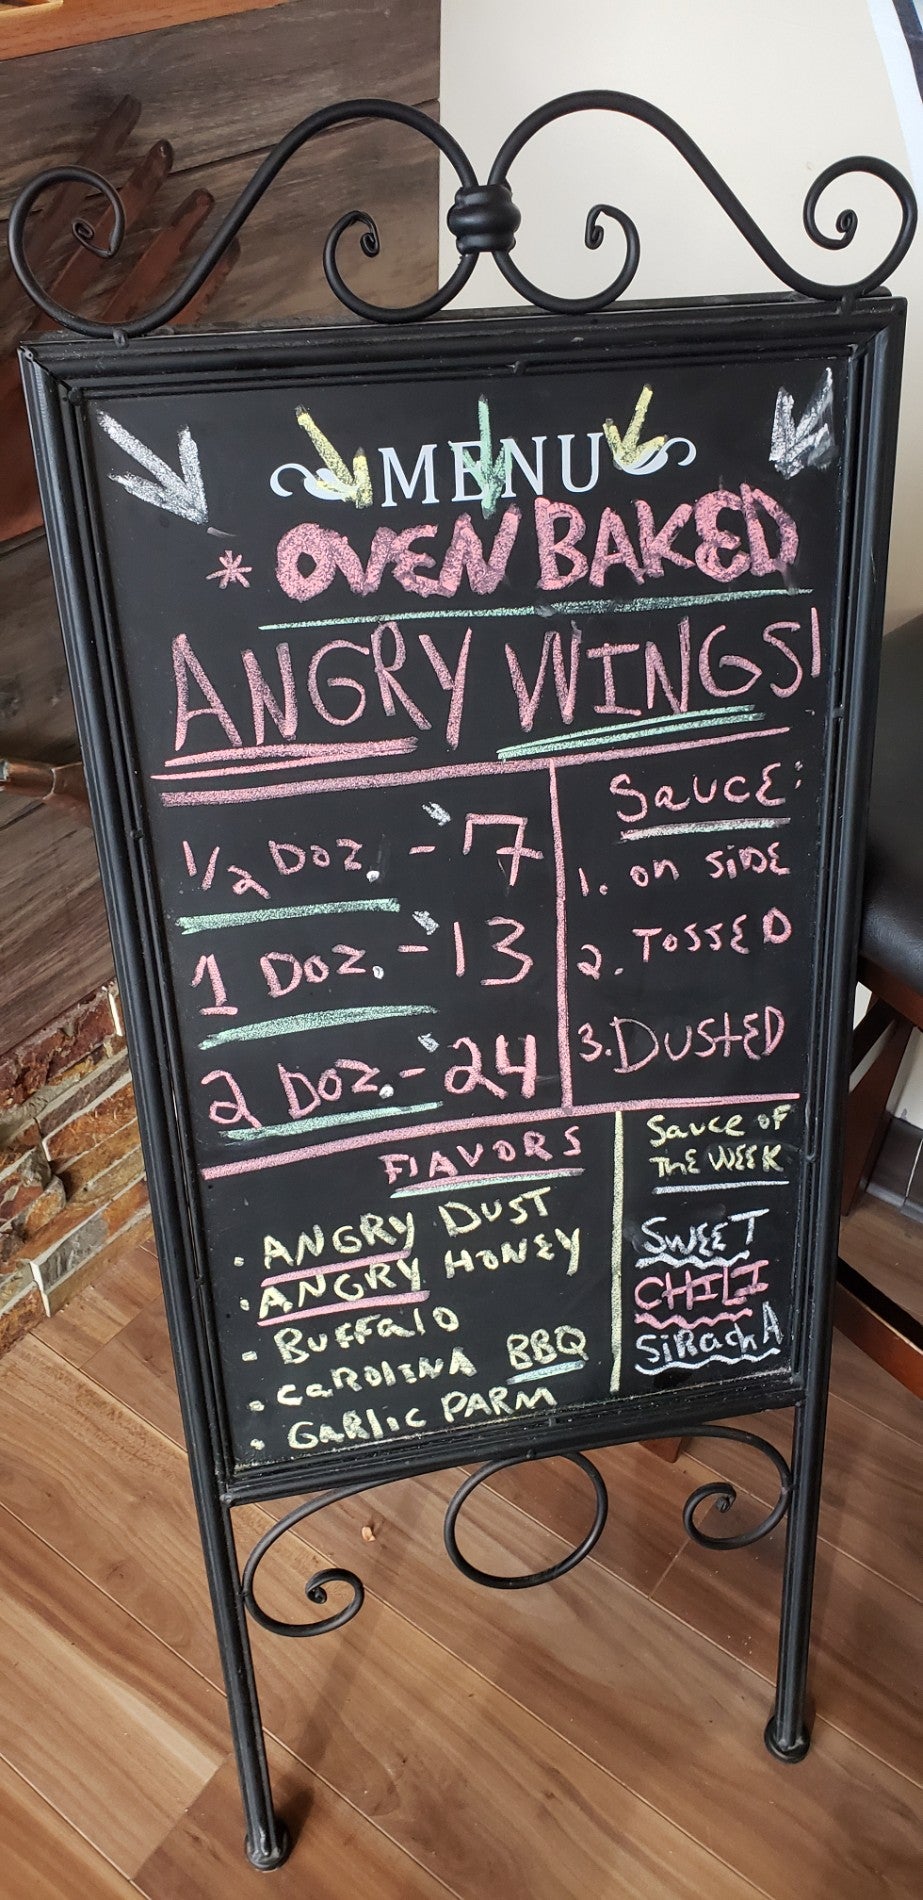 MENU
* OVEN BAKED
ANGRY WINGS!
1/2 DOZ. - 7
1 DOZ. - 13
2 DOZ. - 24
SAUCE:
1. ON SIDE
2. TOSSED
3. DUSTED
FLAVORS
· ANGRY DUST
· ANGRY HONEY
- BUFFalo
· CAROLINA BBQ
· GARLIC PARM
Sauce OF
THE WEEK
SWEET
CHILI
SiRachA